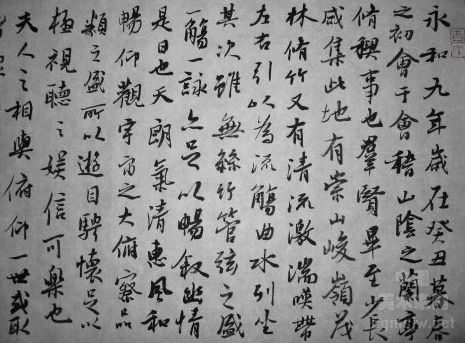 永和九年歲在癸丑暮春
之初會于會稽山陰之蘭亭
脩稧事也羣賢畢至少長
咸集此地有崇山峻嶺茂
林脩竹又有清流激湍暎帶
左右引以為流觴曲水列坐
其次雖無絲竹管弦之盛
一觴一詠亦足以暢敘幽情
是日也天朗氣清惠風和
暢仰觀宇宙之大俯察品
類之盛所以遊目騁懷足以
極視聽之娛信可樂也
夫人之相與俯仰一世或取